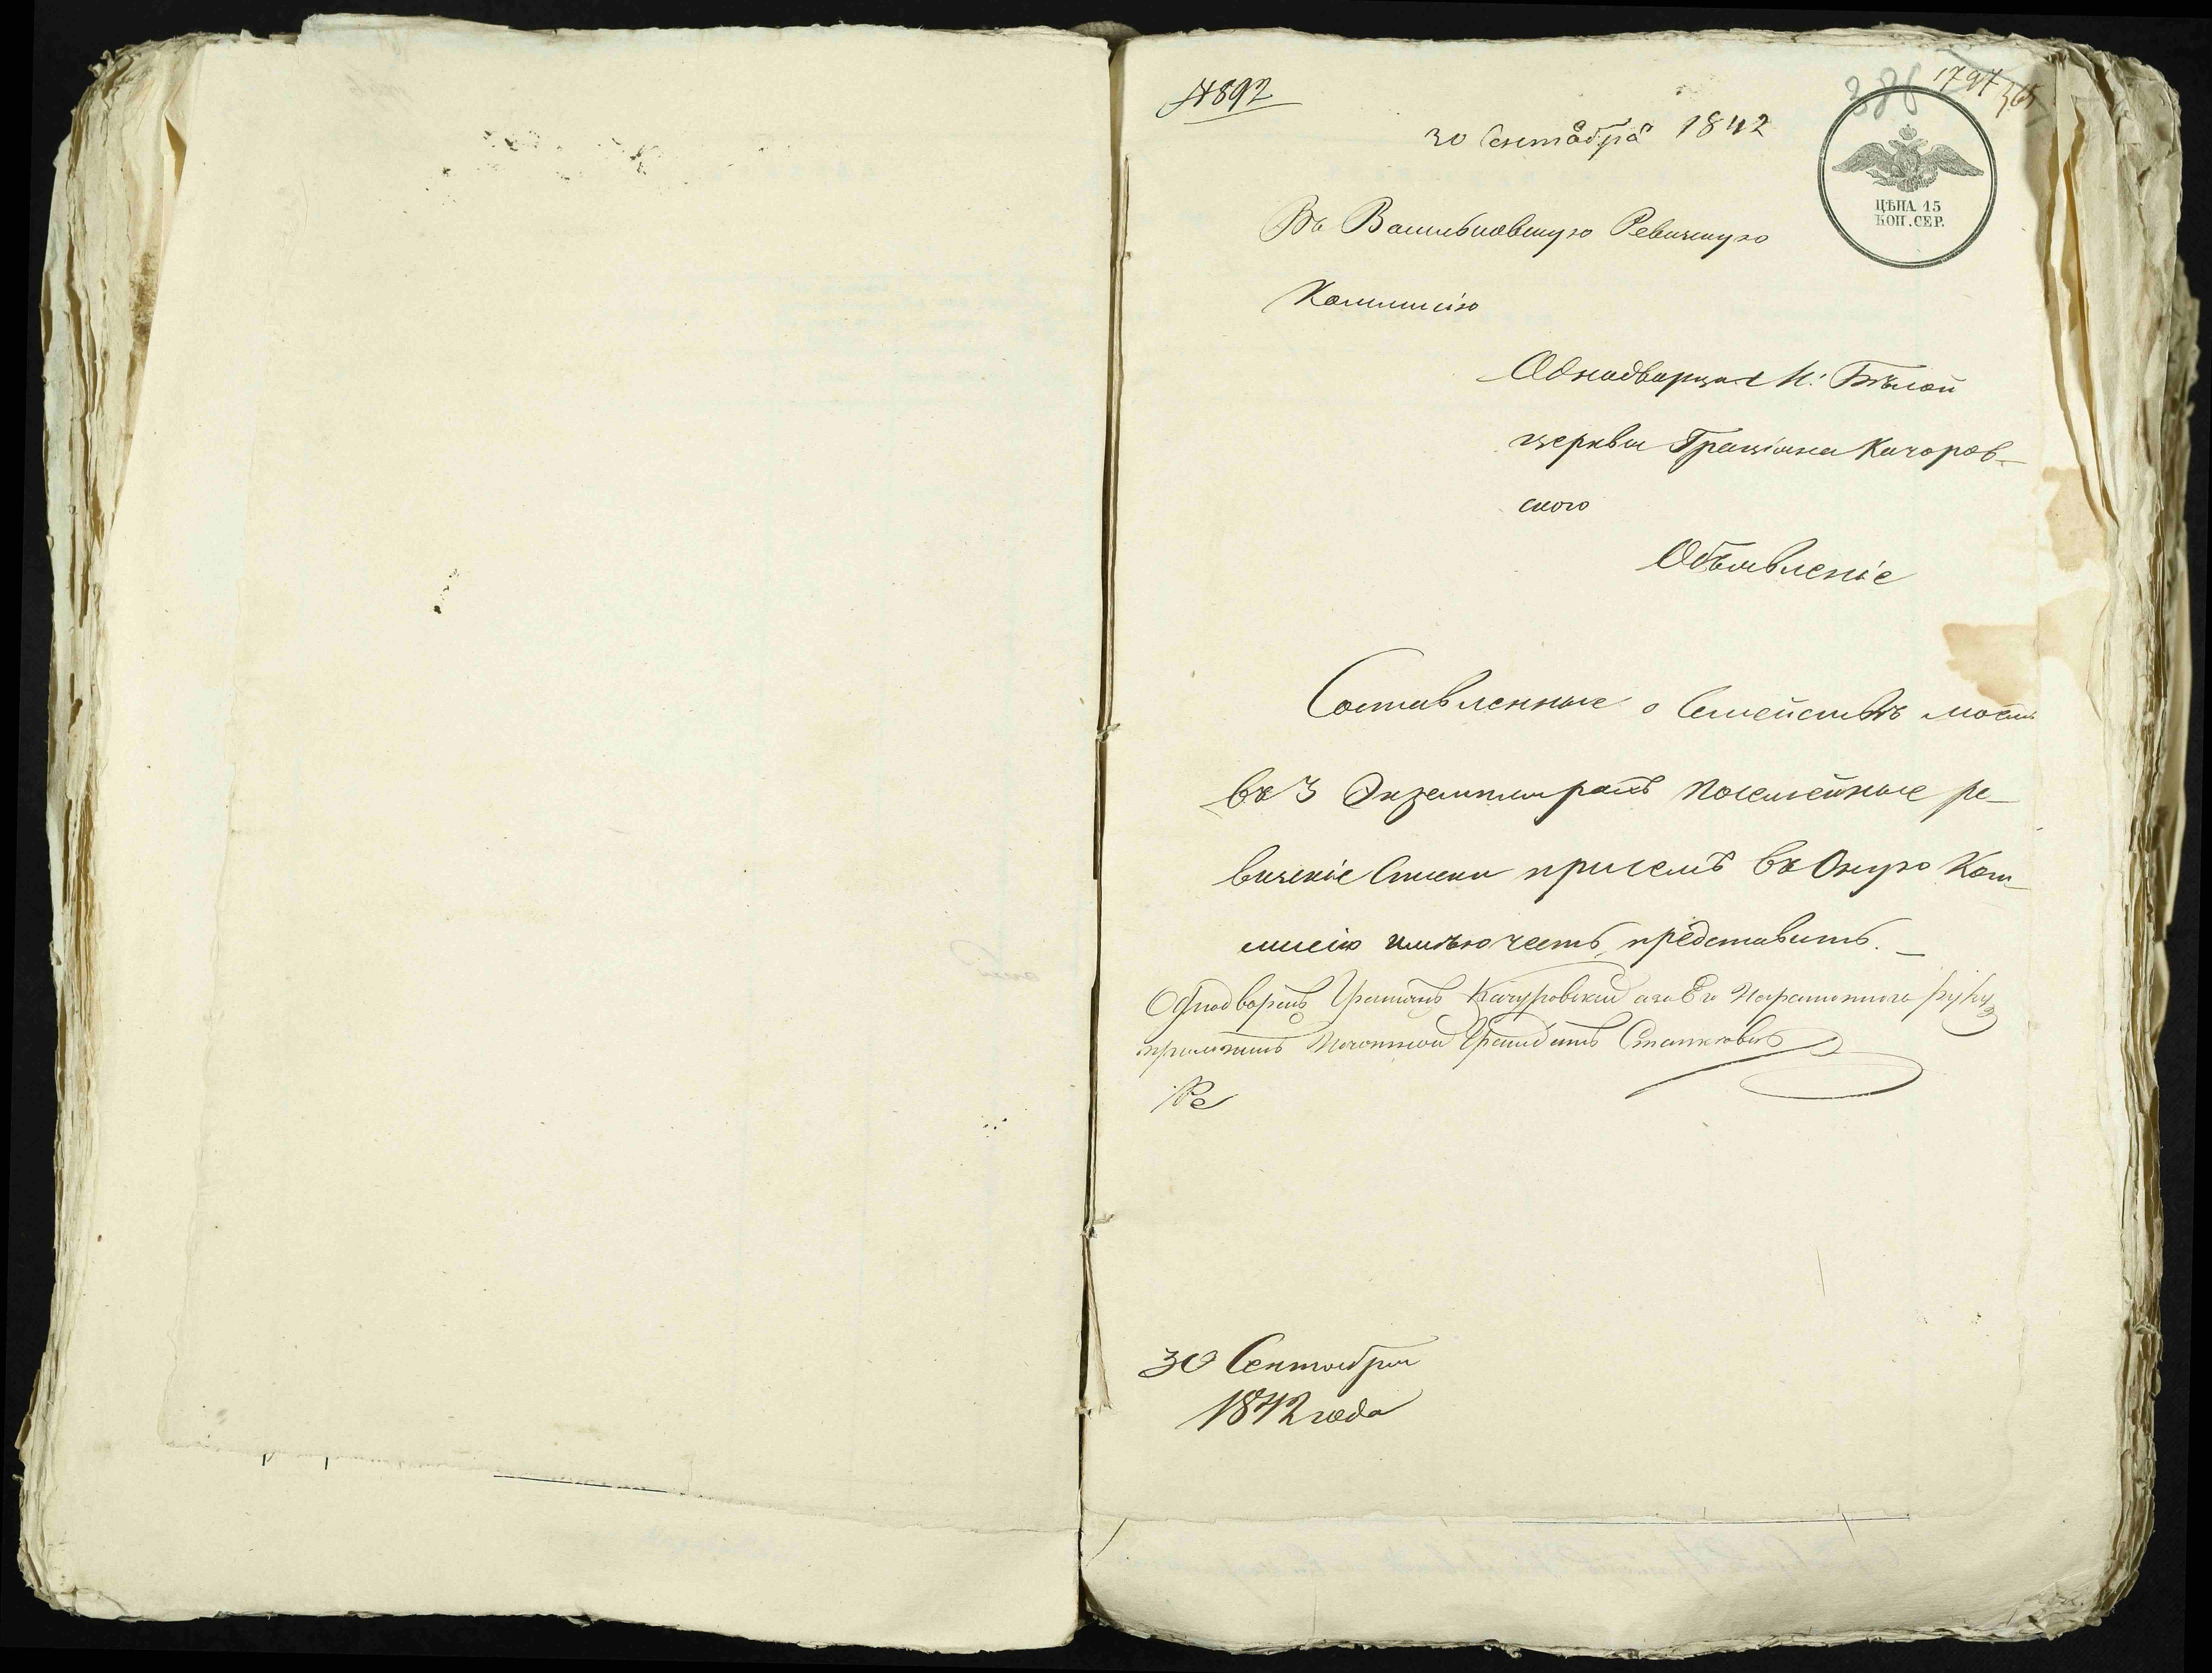 № 892
386
1797
365
30 Сентября 1842
ЦѢНА 15
КОП. СЕР.
Въ Васильковскую Ревизкую
Коммисію
Однодворца М: Бѣлой
церкви Граціана Качоров-
ского
Объявленіе
Составленные о Семействѣ моемъ
въ 3 Экземплярахъ посемейные ре-
визскіе Списки присемъ въ Оную Ком-
мисію имѣю честь представить. —
Однодворецъ Граціанъ Качуровский азаЕго Неграмотного руку
приложилъ Почотной Гражданъ Станкович
Ре
30 Сентября
1842 года